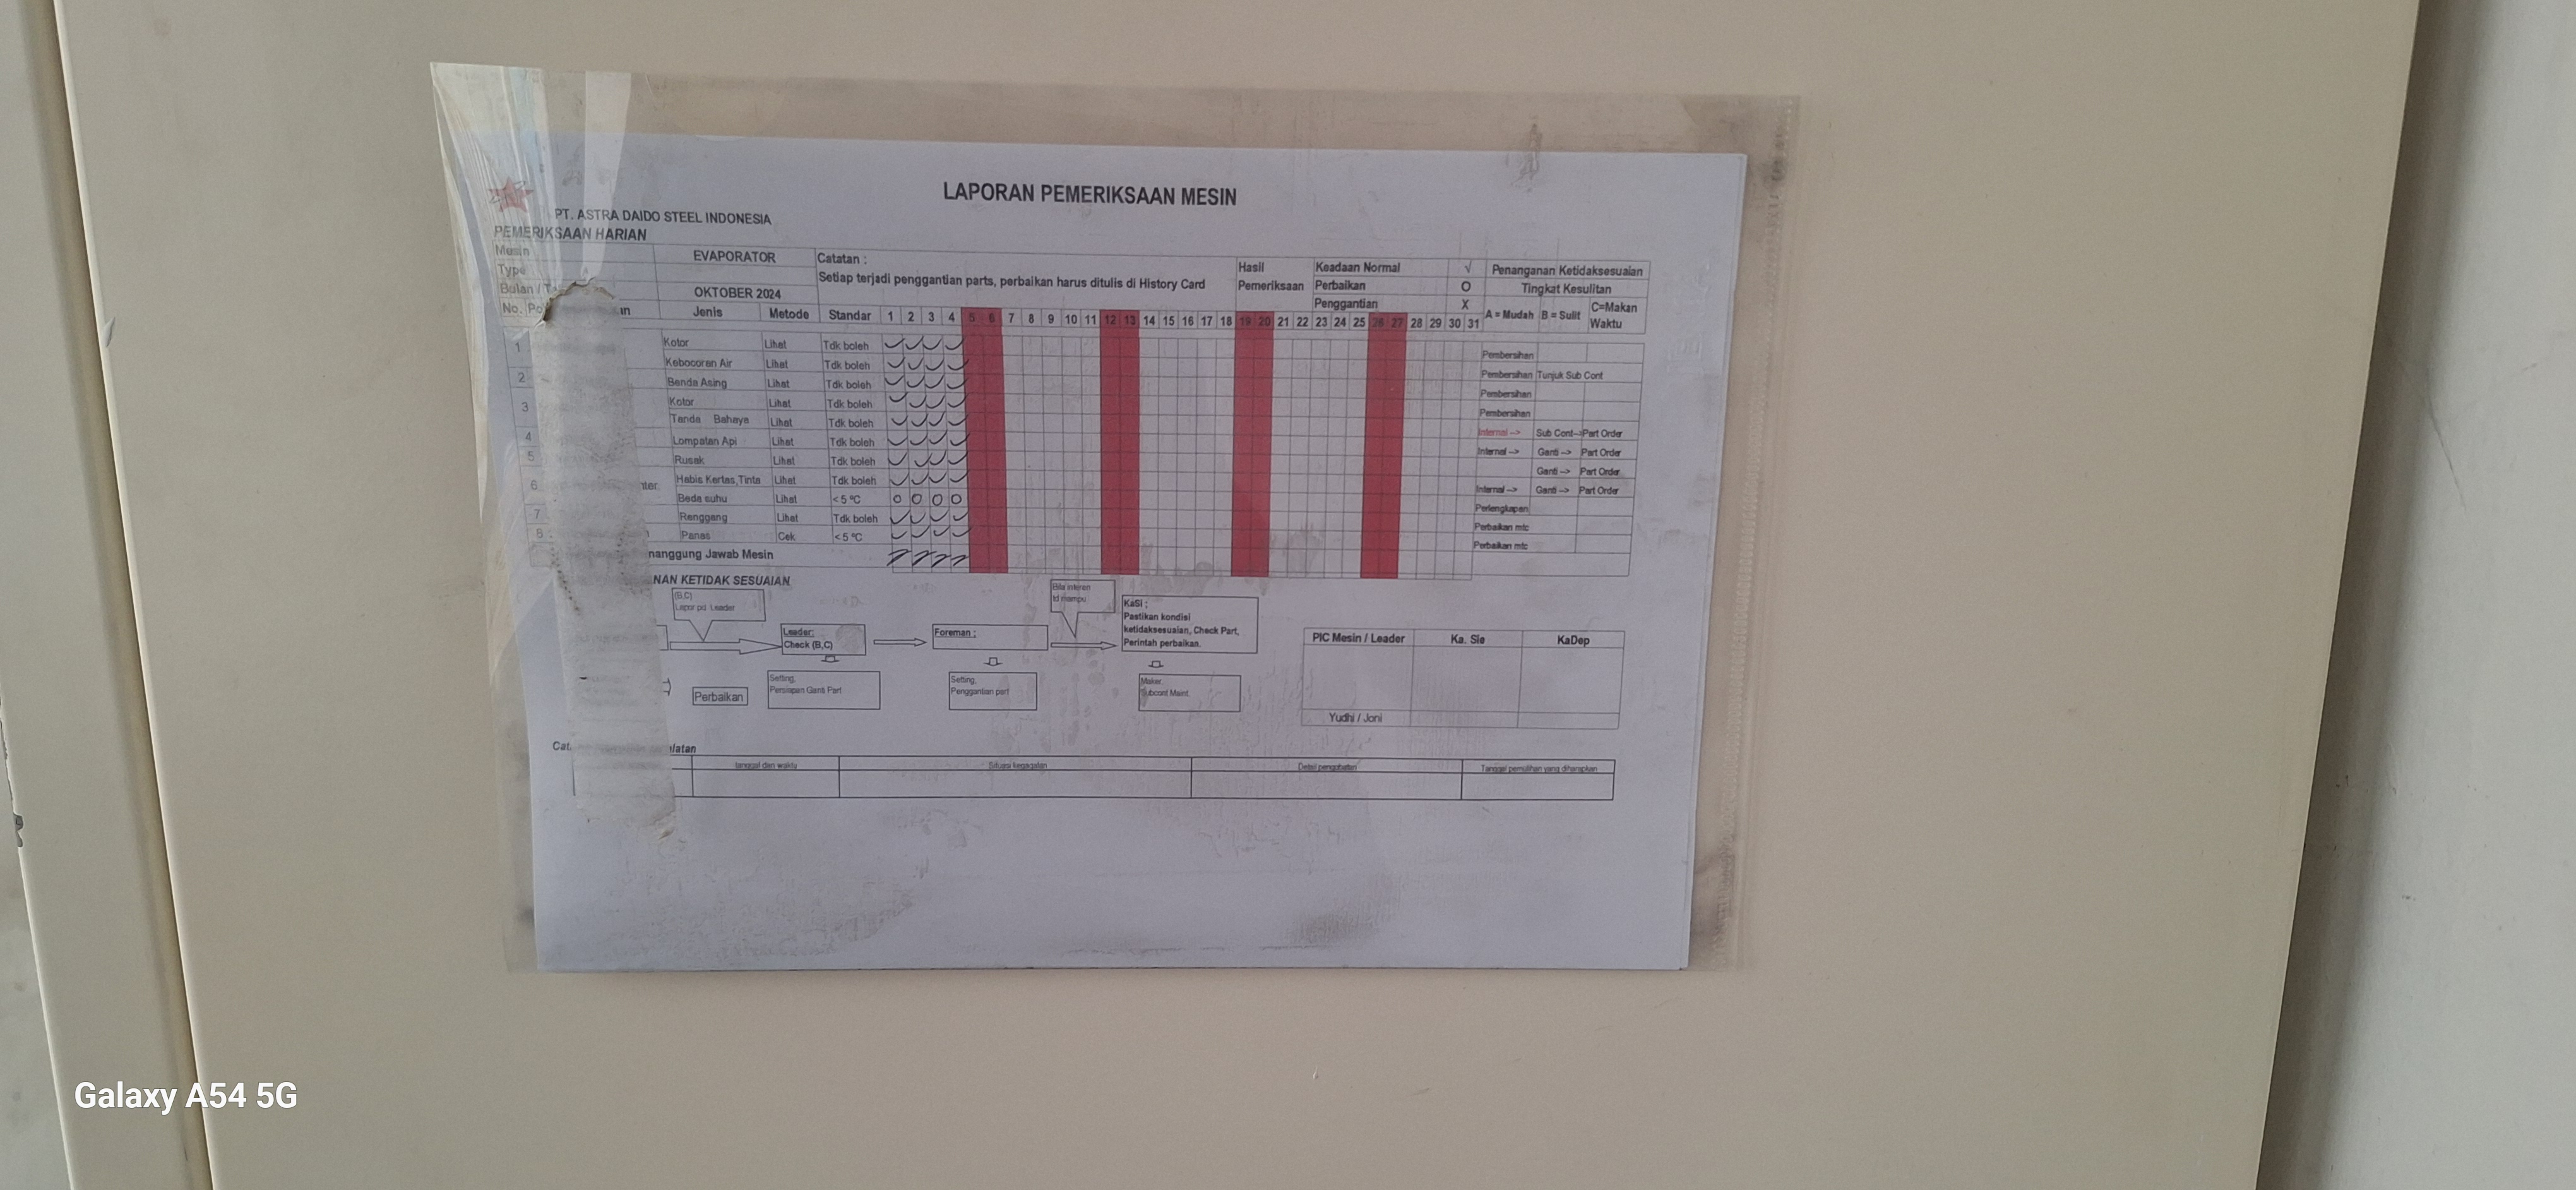 LAPORAN PEMERIKSAAN MESIN
PT. ASTRA DAIDO STEEL INDONESIA
PEMERIKSAAN HARIAN
Mesin EVAPORATOR
Type
Bulan / OKTOBER 2024
Catatan :
Setiap terjadi penggantian parts, perbaikan harus ditulis di History Card
Hasil Pemeriksaan
Keadaan Normal √
Perbaikan O
Penggantian X
Penanganan Ketidaksesuaian
Tingkat Kesulitan
A = Mudah B = Sulit C=Makan Waktu
No. Jenis Metode Standar 1 2 3 4 5 6 7 8 9 10 11 12 13 14 15 16 17 18 19 20 21 22 23 24 25 26 27 28 29 30 31
1 Kotor Lihat Tdk boleh ✓ ✓ ✓ ✓ Pembersihan
Kebocoran Air Lihat Tdk boleh ✓ ✓ ✓ ✓ Pembersihan Tunjuk Sub Cont
2 Benda Asing Lihat Tdk boleh ✓ ✓ ✓ ✓ Pembersihan
3 Kotor Lihat Tdk boleh ✓ ✓ ✓ ✓ Pembersihan
Tanda Bahaya Lihat Tdk boleh ✓ ✓ ✓ ✓ Internal --> Sub Cont-->Part Order
4 Lompatan Api Lihat Tdk boleh ✓ ✓ ✓ ✓ Internal --> Ganti --> Part Order
5 Rusak Lihat Tdk boleh ✓ ✓ ✓ ✓ Ganti --> Part Order
6 Habis Kertas,Tinta Lihat Tdk boleh ✓ ✓ ✓ ✓ Internal --> Ganti --> Part Order
Beda suhu Lihat < 5 ºC O O O O Perlengkapan
7 Renggang Lihat Tdk boleh ✓ ✓ ✓ ✓ Perbaikan mtc
8 Panas Cek < 5 ºC ✓ ✓ ✓ ✓ Perbaikan mtc
nanggung Jawab Mesin
NAN KETIDAK SESUAIAN
(B,C)
Lapor pd Leader
Leader:
Check (B,C)
Foreman :
Bila interen
td mampu
KaSi :
Pastikan kondisi
ketidaksesuaian, Check Part,
Perintah perbaikan.
Perbaikan
Setting,
Persiapan Ganti Part
Setting,
Penggantian part
Maker.
Subcont Maint.
PIC Mesin / Leader Ka. Sie KaDep
Yudhi / Joni
tanggal dan waktu Situasi kegagalan Detail pengobatan Tanggal pemulihan yang diharapkan
Galaxy A54 5G